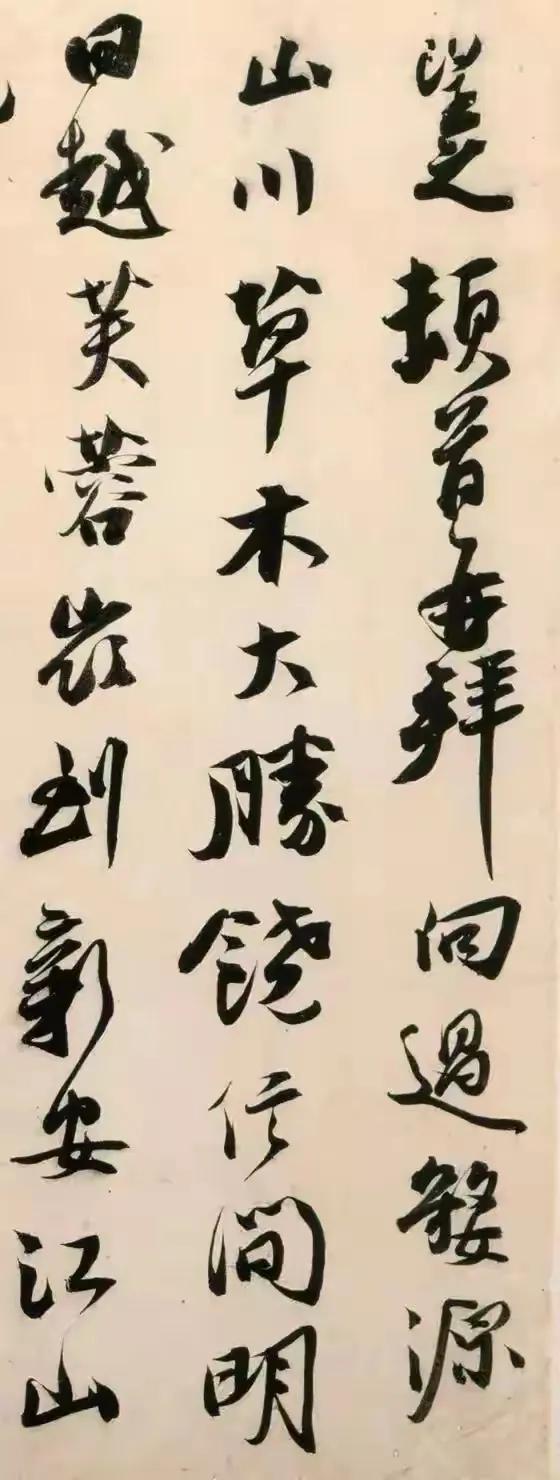 望之頓首再拜向過婺源
山川草木大勝饒信間明
日越芙蓉嶺到新安江山